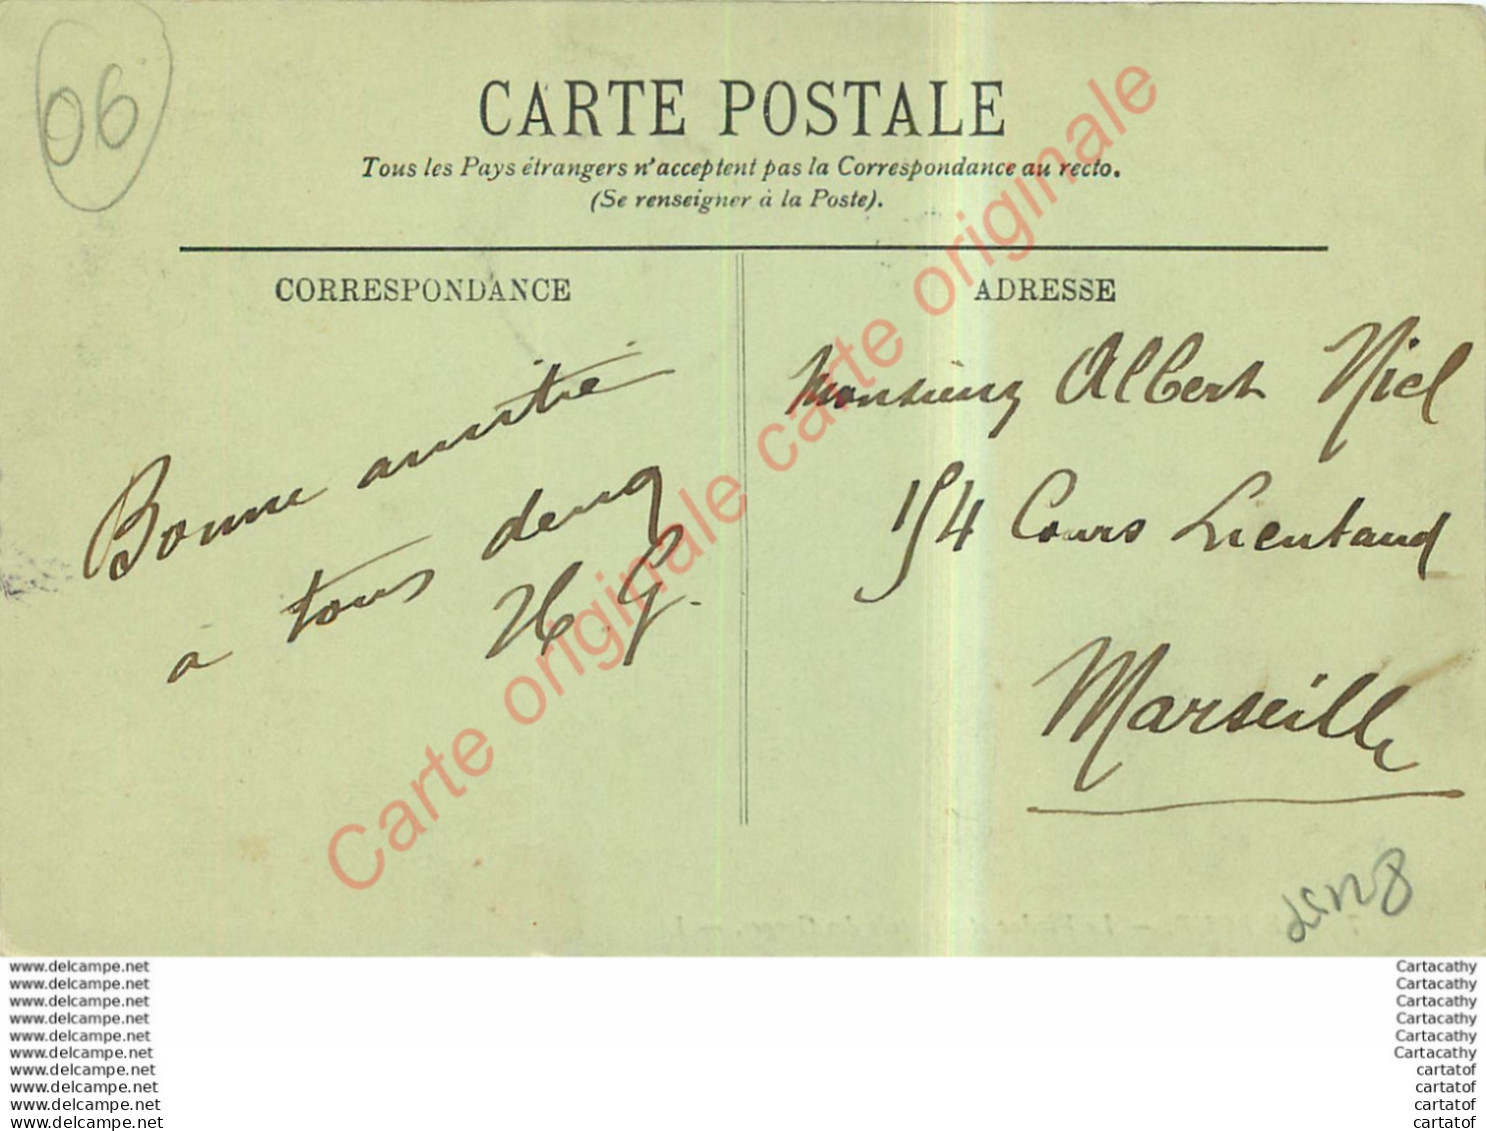 06
CARTE POSTALE
Tous les Pays étrangers n'acceptent pas la Correspondance au recto.
(Se renseigner à la Poste).
CORRESPONDANCE
Bonne amitié
à tous deux
H. G.
ADRESSE
Monsieur Albert Niel
154 Cours Lieutaud
Marseille
Carte originale carte originale
www.delcampe.net
www.delcampe.net
www.delcampe.net
www.delcampe.net
www.delcampe.net
www.delcampe.net
www.delcampe.net
www.delcampe.net
www.delcampe.net
www.delcampe.net
Cartacathy
Cartacathy
Cartacathy
Cartacathy
Cartacathy
Cartacathy
cartatof
cartatof
cartatof
cartatof